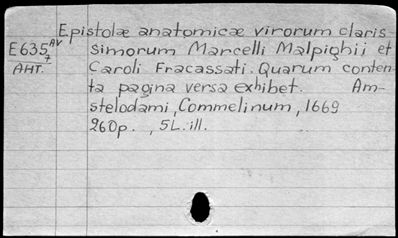 Epistolæ anatomicæ virorum claris
E635 AV 7 simorum Marcelli Malpighii et
AHT. Caroli Fracassati. Quarum conten-
ta pagina versa exhibet. Am-
stelodami, Commelinum, 1669
260p. , 5L. ill.